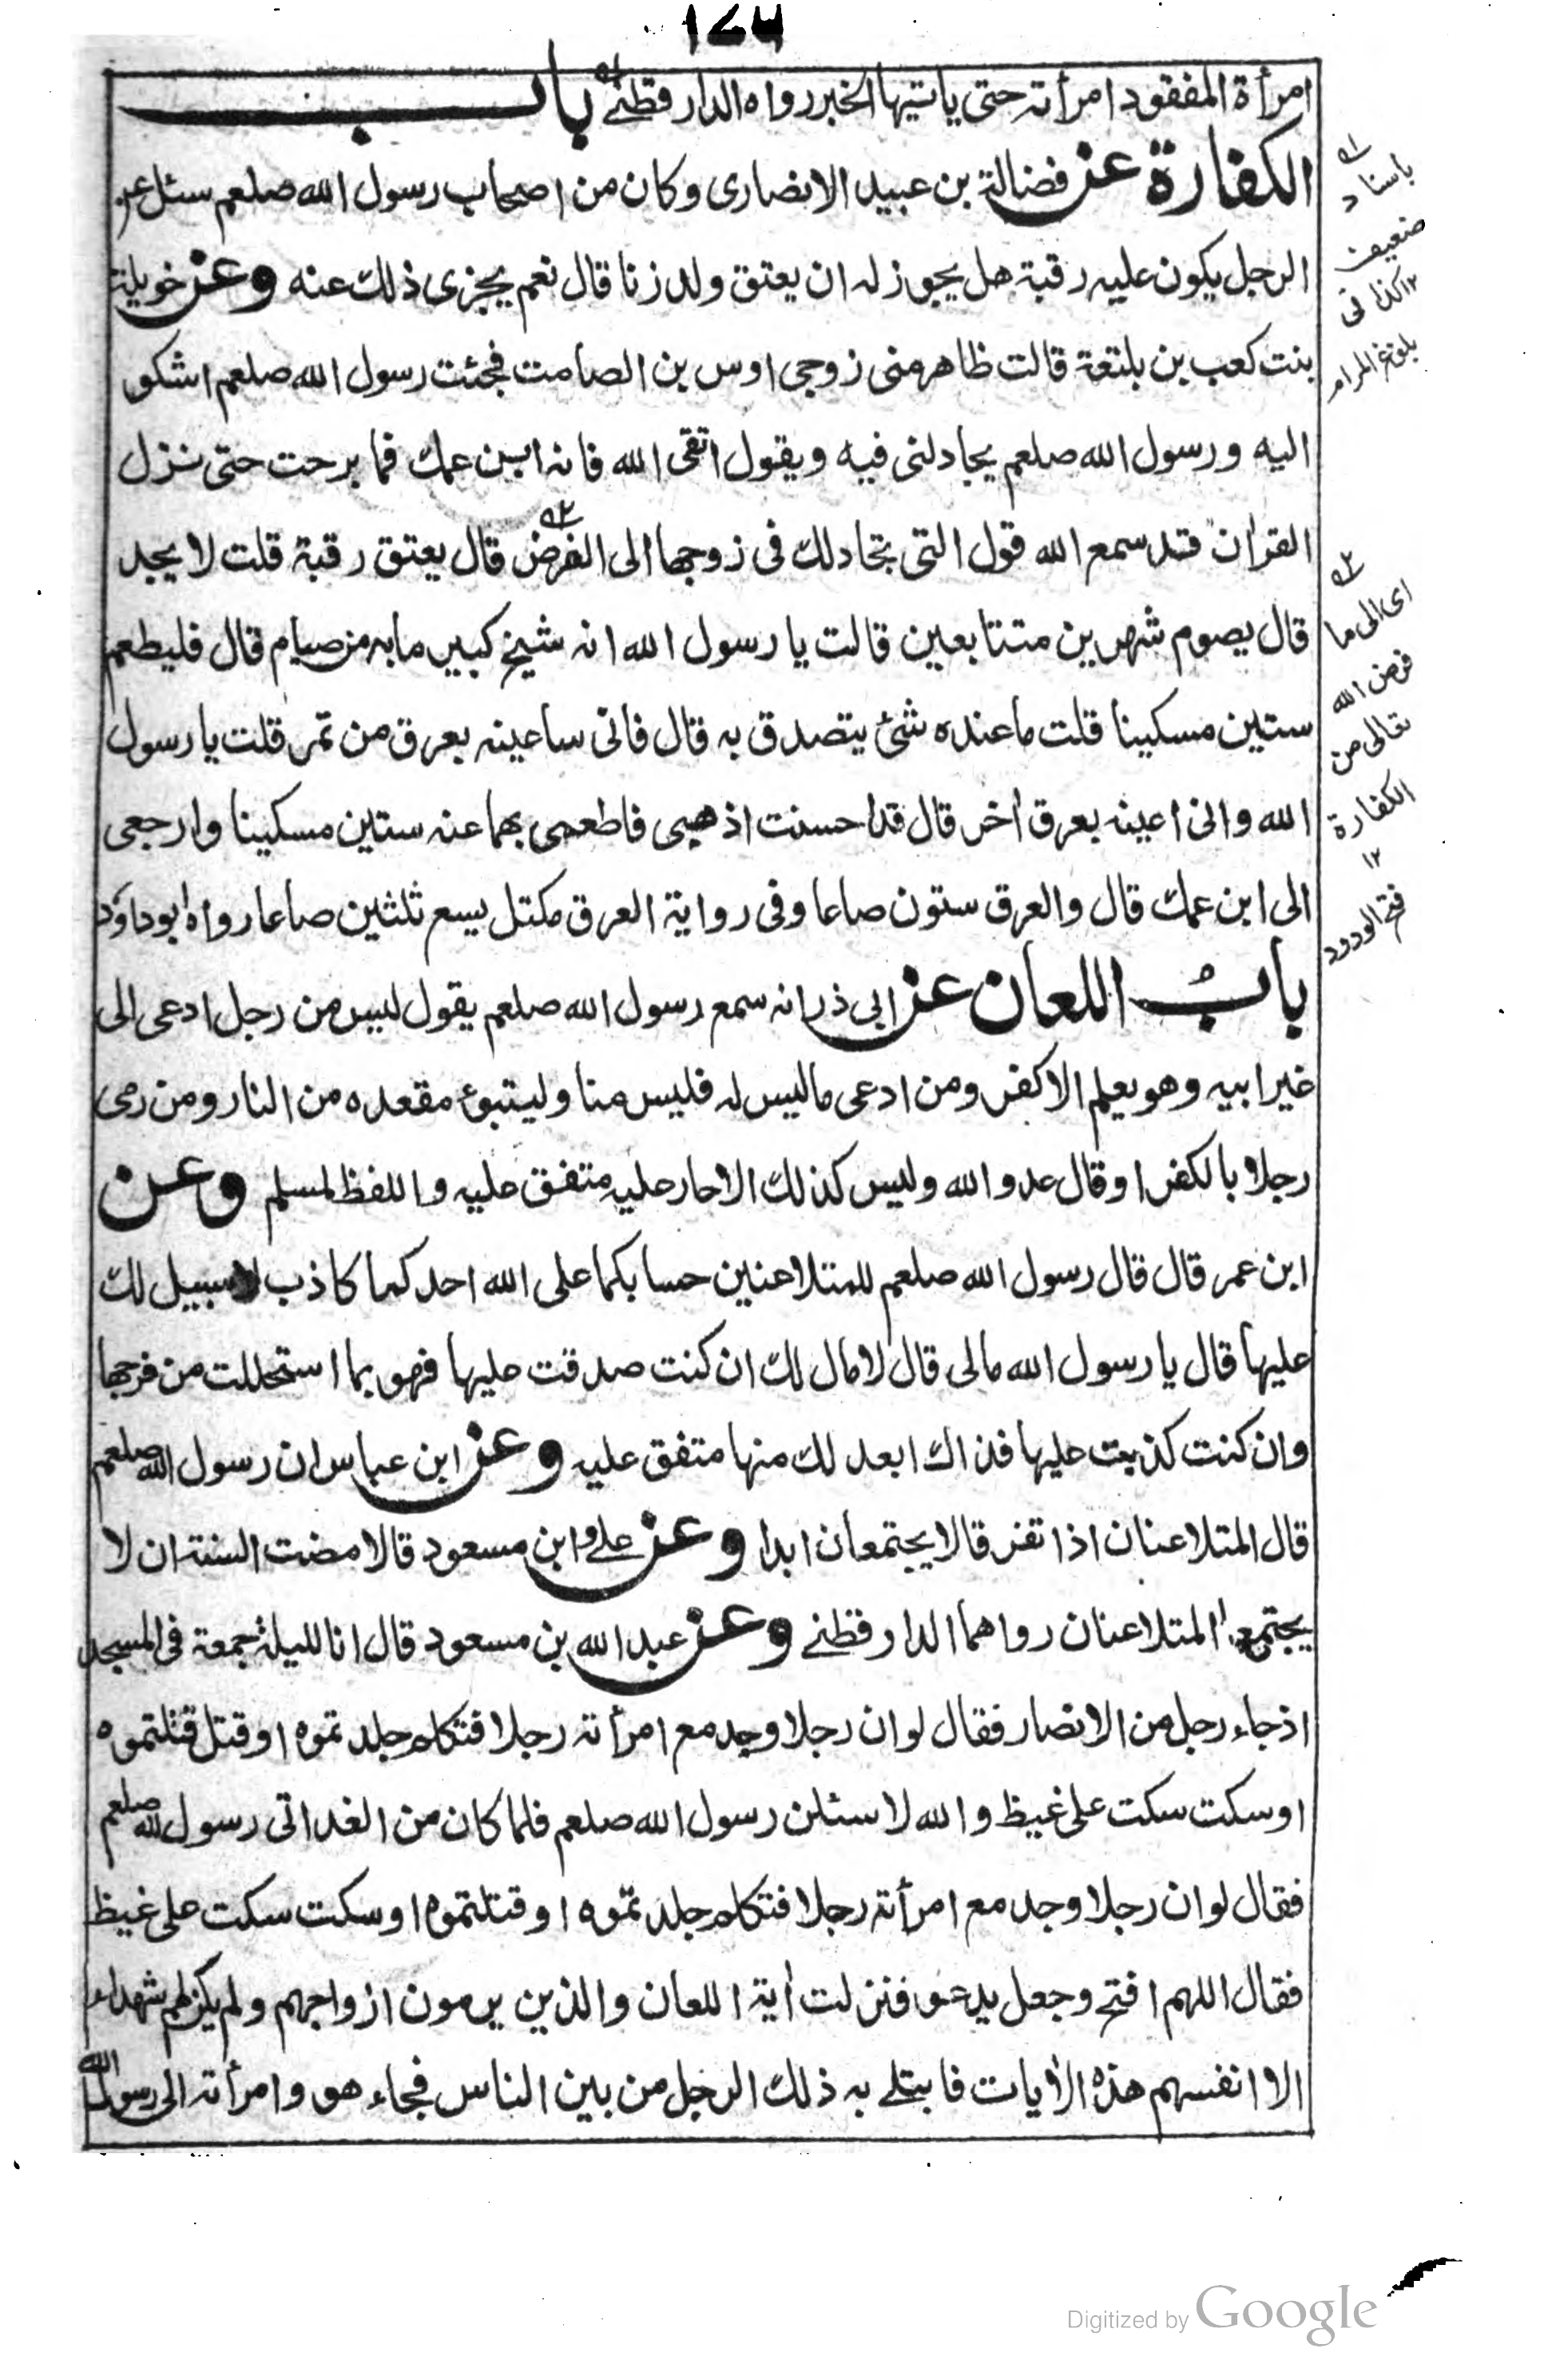 ١٧٣
امرأة المفقود امرأته حتى ياتيها الخبر رواه الدارقطنے باب
الكفارة عن فضالة بن عبيد الانصارى وكان من اصحاب رسول الله صلعم سئل عن
الرجل يكون عليه رقبة هل يجوز له ان يعتق ولد زنا قال نعم يجزى ذلك عنه وعن خويلة
بنت كعب بن بلتعة قالت ظاهر منى زوجى اوس بن الصامت فجئت رسول الله صلعم اشكو
اليه ورسول الله صلعم يجادلنى فيه ويقول اتقى الله فانه ابن عمك فما برحت حتى نزل
القران قد سمع الله قول التى تجادلك فى زوجها الى الفرض قال يعتق رقبة قلت لا يجد
قال يصوم شهرين متتابعين قالت يا رسول الله انه شيخ كبير ما به من صيام قال فليطعم
ستين مسكينا قلت ما عنده شئ يتصدق به قال فانى ساعينه بعرق من تمر قلت يا رسول
الله وانى اعينه بعرق اخر قال قد احسنت اذهبى فاطعمى بهما عنه ستين مسكينا وارجعى
الى ابن عمك قال والعرق ستون صاعا وفى رواية العرق مكتل يسع ثلثين صاعا رواه ابو داؤد
باب اللعان عن ابى ذر انه سمع رسول الله صلعم يقول ليس من رجل ادعى الى
غير ابيه وهو يعلم الا كفر ومن ادعى ما ليس له فليس منا وليتبوء مقعده من النار ومن رمى
رجلا بالكفر او قال عدو الله وليس كذلك الا حار عليه متفق عليه واللفظ لمسلم وعن
ابن عمر قال قال رسول الله صلعم للمتلاعنين حسابكما على الله احدكما كاذب لا سبيل لك
عليها قال يا رسول الله مالى قال لا مال لك ان كنت صدقت عليها فهو بما استحللت من فرجها
وان كنت كذبت عليها فذاك ابعد لك منها متفق عليه وعن ابن عباس ان رسول الله صلعم
قال المتلاعنان اذا تفرقا لا يجتمعان ابدا وعن على وابن مسعود قالا مضت السنة ان لا
يجتمع المتلاعنان رواهما الدارقطنے وعن عبد الله بن مسعود قال انا لليلة جمعة فى المسجد
اذ جاء رجل من الانصار فقال لو ان رجلا وجد مع امرأته رجلا فتكلم جلدتموه او قتل قتلتموه
او سكت سكت على غيظ والله لاسئلن رسول الله صلعم فلما كان من الغد اتى رسول الله صلعم
فقال لو ان رجلا وجد مع امرأته رجلا فتكلم جلدتموه او قتلتموه او سكت سكت على غيظ
فقال اللهم افتح وجعل يدعو فنزلت اية اللعان والذين يرمون ازواجهم ولم يكن لهم شهداء
الا انفسهم هذه الايات فابتلے به ذلك الرجل من بين الناس فجاء هو وامرأته الى رسول الله
باسناد
ضعيف
١٢ كذا فى
بلوغ المرام
اى الى ما
فرض الله
تعالى من
الكفارة
١٢
فتح الودود
Digitized by Google